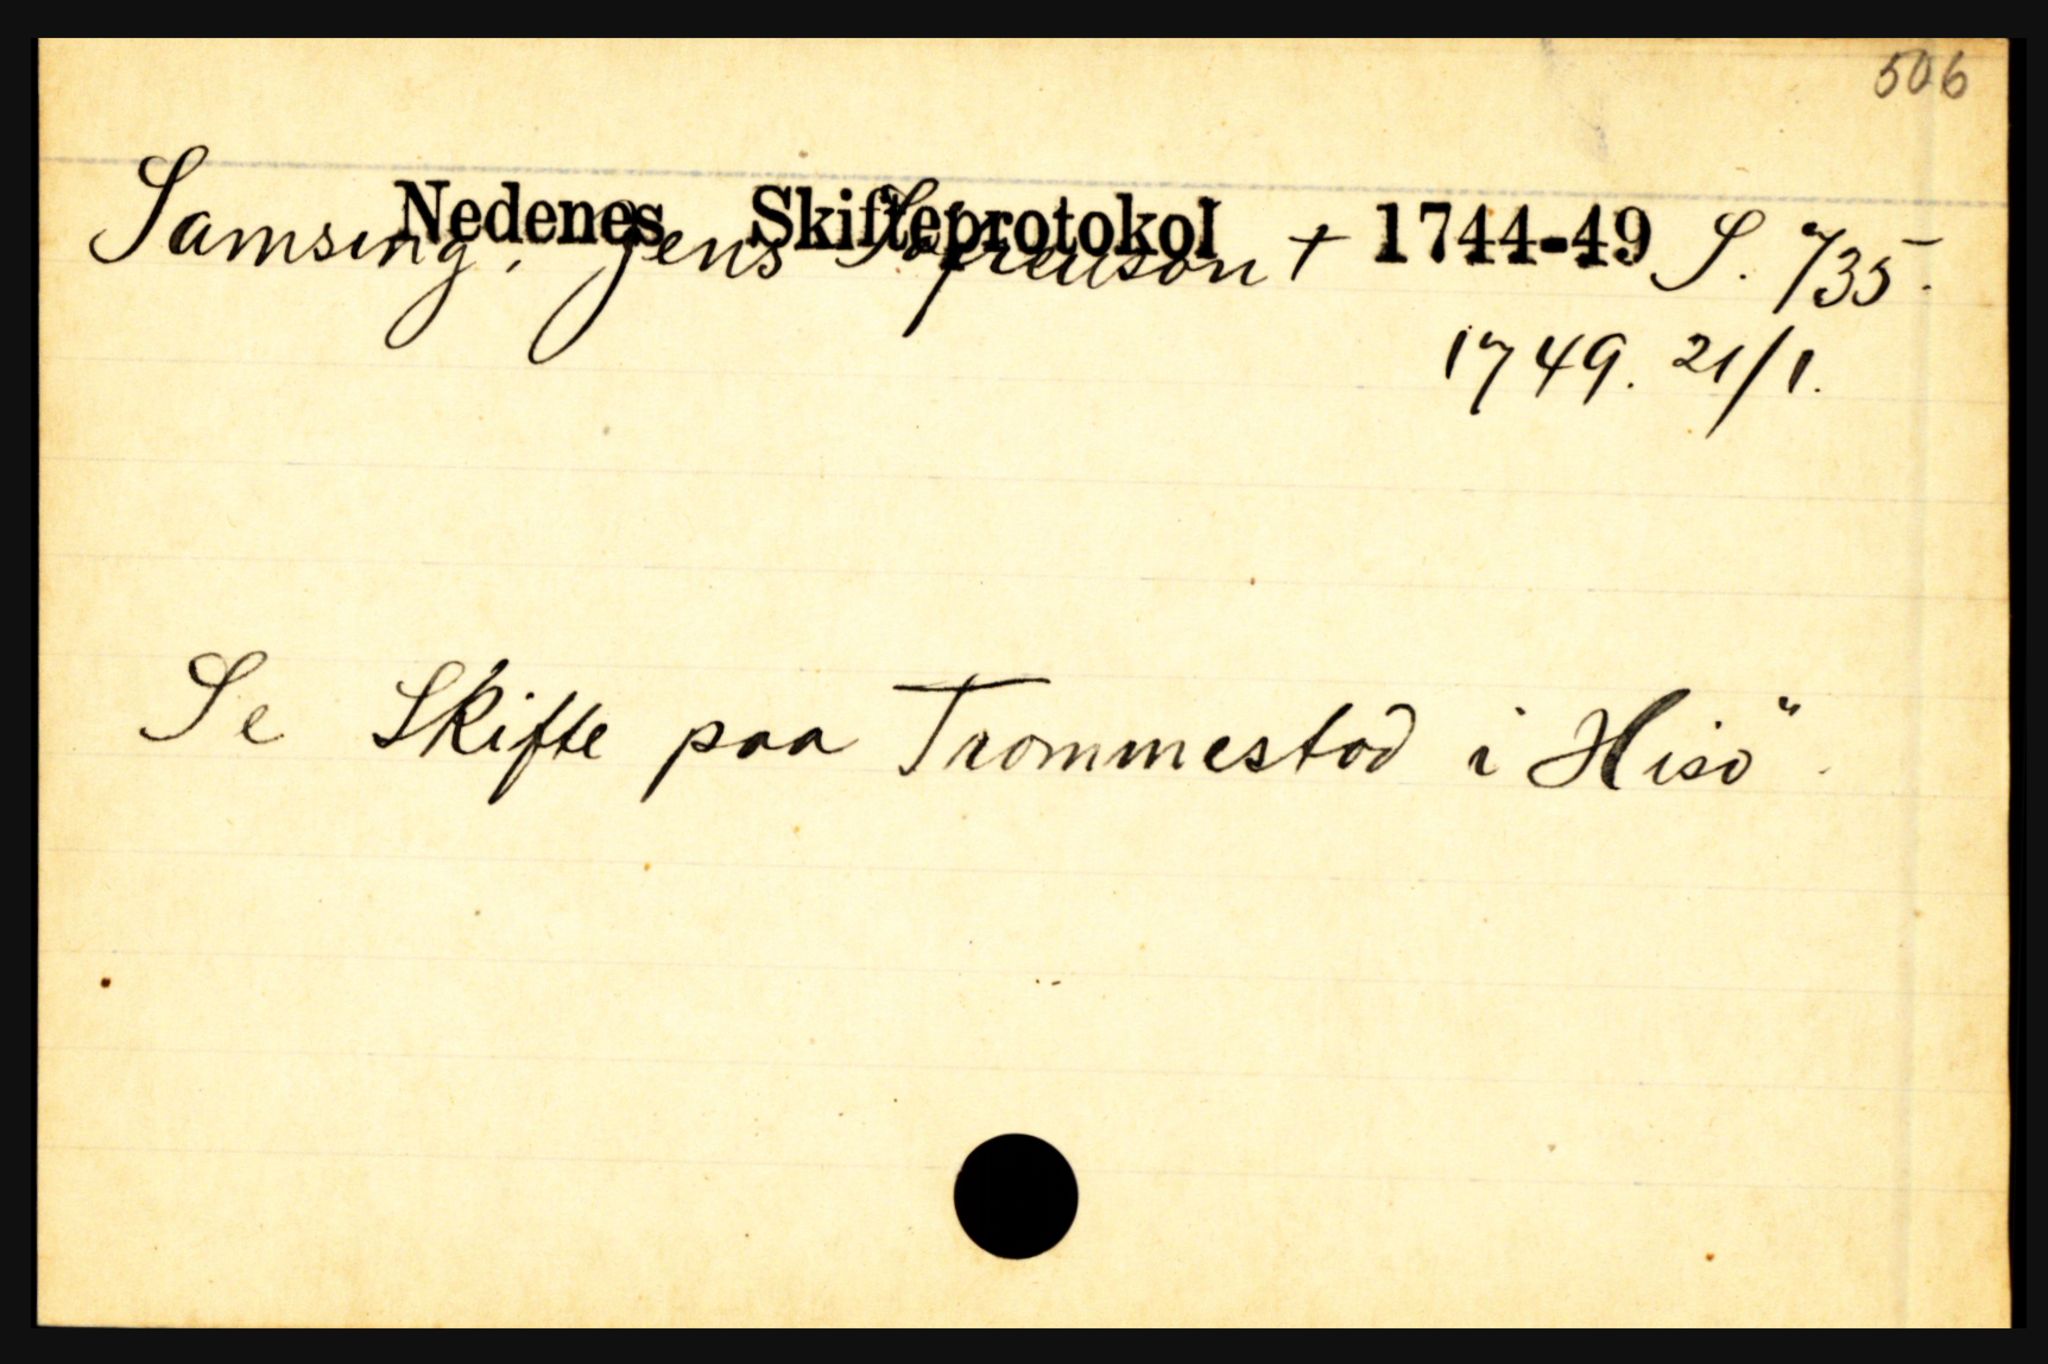 506
Nedenes Skifteprotokol 1744-49 S. 735.
Samsing, Jens Sørenson +
1749. 21/1.
Se Skifte paa Trommestad i Hisö.